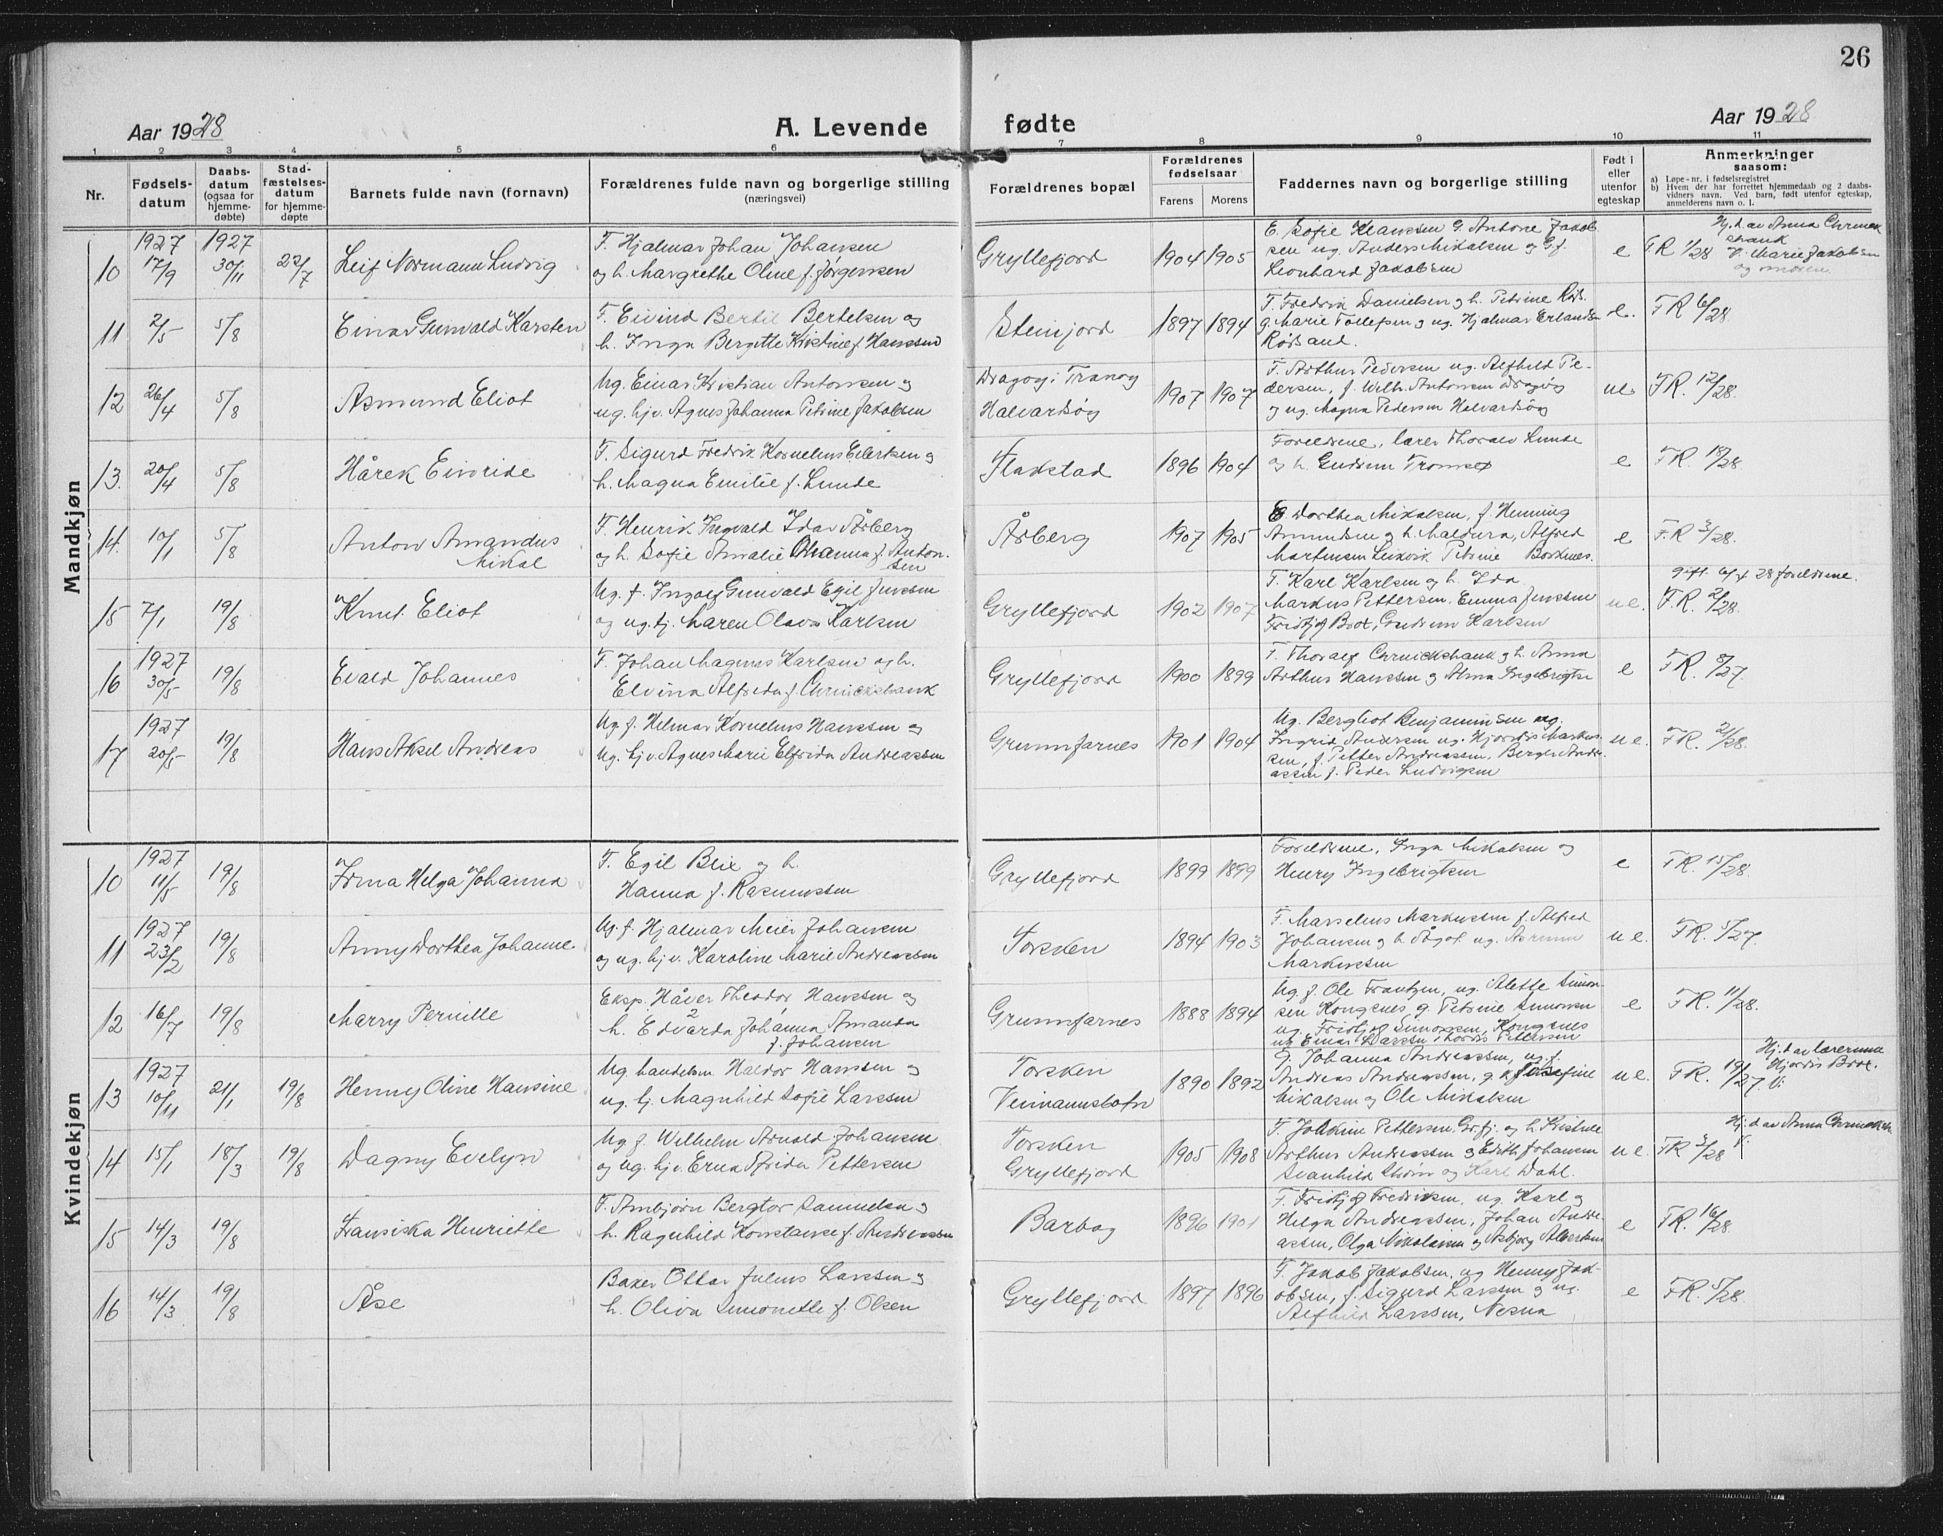 26
Aar 1928
A. Levende fødte
Aar 1928
1 2 3 4 5 6 7 8 9 10 11
Nr.
Fødsels-
datum
Daabs-
datum
(ogsaa for
hjemme-
døbte)
Stad-
fæstelses-
datum
for hjemme-
døpte
Barnets fulde navn (fornavn)
Forældrenes fulde navn og borgerlige stilling
(næringsvei)
Forældrenes bopæl
Forældrenes
fødselsaar
Farens Morens
Faddernes navn og borgerlige stilling
Født i
eller
utenfor
egteskap
Anmerkninger
saasom:
a) Løpe-nr. i fødselsregistret
b) Hvem der har forrettet hjemmedaab og 2 daabs-
vidners navn. Ved barn, født utenfor egteskap,
anmelderens navn o. l.
Mandkjøn
10
1927
17/9
1927
30/11
22/7
Leif Normann Ludvig
F. Hjalmar Johan Johansen
og h. Margrethe Oline f. Jørgensen
Gryllefjord
1904 1905
E. Sofie Klaussen G. Antone Jakob
sen ug. Anders Mikalsen og G. f.
Leonhard Jakobsen
e
FR 1/28
Hj. d. av Anna Cruick
shank
V. Marie Jakobsen
og moren.
11
2/5
5/8
Einar Gunvald Karsten
F. Eivind Bertil Bertelsen og
h. Inga Bergitte Kristine f. Hanssen
Steinfjord
1897 1894
F. Fredrik Danielsen og h. Petrine Røds.
g. Marie Tollefsen og ug. Hjalmar Erlandsen
Rødsand.
e.
FR 6/28
12
26/4
5/8
Asmund Eliot
Ug. Einar Kristian Antonsen og
ug. hj v. Agnes Johanna Petrine Jakobsen
Dragøy i Tranøy
Halvardsøy
1907 1907
F. Arthur Pedersen ug. Alfhild Pe-
dersen, f. Wilh. Antonsen Dragøy
og ug. Magna Pedersen Halvardsøy
ue
FR. 12/28.
13.
20/4
5/8
Hårek Eivride
F. Sigurd Fredrik Kornelius Eilertsen og
h. Magna Emilie f. Lunde
Flakstad
1896 1904
Foreldrene, lærer Thoralv Lunde
og h. Gudrun Tromsø
e
FR. 18/28
14.
10/1
5/8
Anton Amandus
Mikal
F. Henrik Ingvald Idar Årberg
og h. Sofie Amalie Ohanna f. Anton-
sen
Årberg
1907 1905
E Dorthea Mikalsen, f. Henning
Amundsen og h. Maldura, Alfred
Martinsen Leikvik Petrine Borknes.
e
F.R 3/28.
15
7/1
19/8
Knut Eliot
Ug. f. Ingolf Gunvald Egil Jenssen
og ug. hj. Maren Olava Karlsen
Gryllefjord
1902 1907
F. Karl Karlsen og h. Ida
Markus Pettersen. Emma Jenssen
Fridtjof Boot, Gudrun Karlsen
ue.
F.R. 2/28.
gift 6/4 28 foreldrene.
16
1927
30/5
19/8
Evald Johannes
F. Johan Magnus Karlsen og h.
Elvina Alfreda f. Cruickshank
Gryllefjord
1900 1899
F. Thoralf Cruickshank og h. Anna
Arthur Hanssen og Alma Ingebrigtse
e
FR. 8/27.
17
1927
20/5
19/8
Hans Aksel Andreas
Ug. f. Helmar Kornelius Hanssen og
Ug. hj v. Agnes Marie Elfrida Andreassen
Grunnfarnes
1901 1904
Ug. Bergliot Benjaminsen ug.
Ingrid Andersen ug. Hjørdis Markus
sen, f. Petter Andreassen, Bergler Andre-
assen f. Peder Ludvigsen
ue.
FR. 2/28.
Kvindekjøn
10
1927
11/5
19/8
Irma Helga Johanna
F. Egil Blix og h.
Hanna f. Rasmussen
Gryllefjord
1899 1899
Foreldrene, Inga Mikalsen og
Henry Ingebrigtsen
e
FR. 15/28
11
1927
23/2
19/8
Anny Dorthea Johanne
Ug. f. Hjalmar Meier Johansen
og ug. hj v. Karoline Marie Andreassen
Torsken
1894 1903
F. Marselius Markussen f. Alfred
Johansen og h. Ågot ug. Asrunn
Markussen
ue.
FR. 5/27.
12
16/7
19/8
Marry Pernille
Eksp. Håver Theodor Hanssen og
h. Edvarda Johanna Amanda
f. Johansen
Grunnfarnes
1888 1894
Ug f. Ole Frantzen, ug. Alette Simon
sen Kongsnes, g. Petrine Simonsen
ug. Fridtjof Simonsen, Kongsnes
ug Einar Larssen Thordis Pettersen
e
FR. 11/28.
13
1927
10/11
21/1
19/8
Henny Oline Hansine
Ug. handelsm Haldor Hanssen og
ug. hj. Magnhild Sofie Larssen
Torsken
Veimannsbotn
1890 1892
G. Johanna Andreassen, ug. f.
Andreas Andreassen, g. k. Josefine
Mikalsen og Ole Mikalsen
ue.
FR. 19/27.
Hj. d av lærerinne
Hjørdis Boot.
V.
14
15/1
18/3
19/8
Dagny Evelyn
Ug f. Wilhelm Arnold Johansen
og ug. hj v. Erna Frida Pettersen
Torsken
Gryllefjord
1905 1908
F. Joakim Pettersen Grfj. og h. Kristine
Arthur Andreassen og Edith Johansen
Svanhild Strøm og Karl Dahl.
ue.
FR 3/28
Hj. d av Anna Cruicksh
V.
15
14/3
19/8
Fransiska Henriette
F. Arnbjørn Bergtor Samuelsen og
h. Ragnhild Konstanse f. Andreassen
Barbog
1896 1901
F. Fridtjof Fredriksen, ug. Karl og
Helga Andreassen, Johan Andre-
assen, Olga Nikolaisen og Asbjørg Albertsen
e
FR. 16/28.
16
14/3
19/8
Åse
Baker Ottar Julius Larssen og
h. Oliva Simonette f. Olsen
Gryllefjord
1897 1896
F. Jakob Jakobsen, ug Henny Jak-
obsen, f. Sigurd Larssen og ug.
Alfhild Larssen, Nesna
e
FR. 5/28.